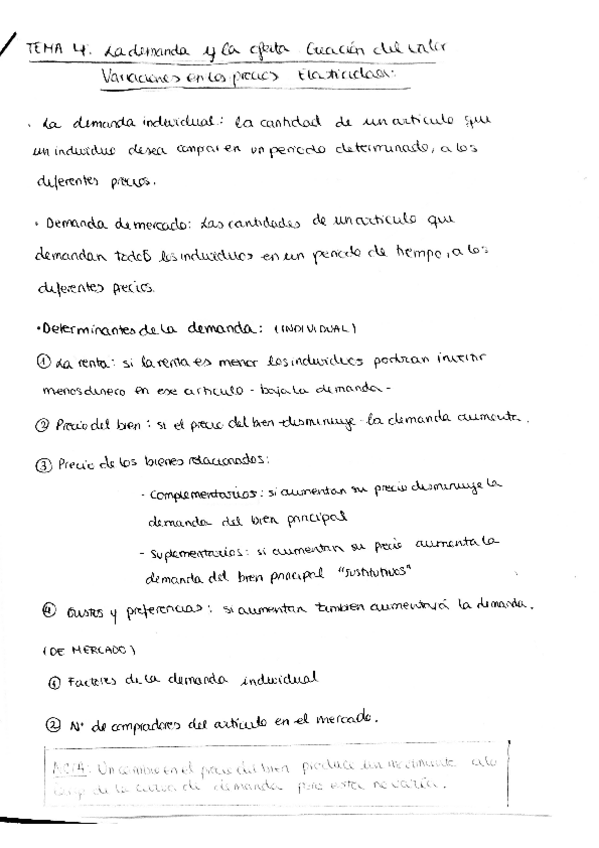 TEMA 4. La demanda y la oferta. Creación del valor
Variaciones en los precios Elasticidad:
· La demanda individual: la cantidad de un artículo que
un individuo desea comprar en un periodo determinado, a los
diferentes precios.
· Demanda de mercado: Las cantidades de un artículo que
demandan todos los individuos en un periodo de tiempo, a los
diferentes precios.
· Determinantes de la demanda: (INDIVIDUAL)
① La renta: si la renta es menor los individuos podrían invertir
menos dinero en ese artículo - baja la demanda -
② Precio del bien: si el precio del bien disminuye la demanda aumenta.
③ Precio de los bienes relacionados:
· Complementarios: si aumentan su precio disminuye la
demanda del bien principal
- Suplementarios: si aumentan su precio aumenta la
demanda del bien principal "sustitutivos"
④ Gustos y preferencias: si aumentan también aumentará la demanda.
(DE MERCADO)
① Factores de la demanda individual
② Nº de compradores del artículo en el mercado.
NOTA: Un cambio en el precio del bien produce un movimiento a lo
largo de la curva de demanda pero esta no varía.